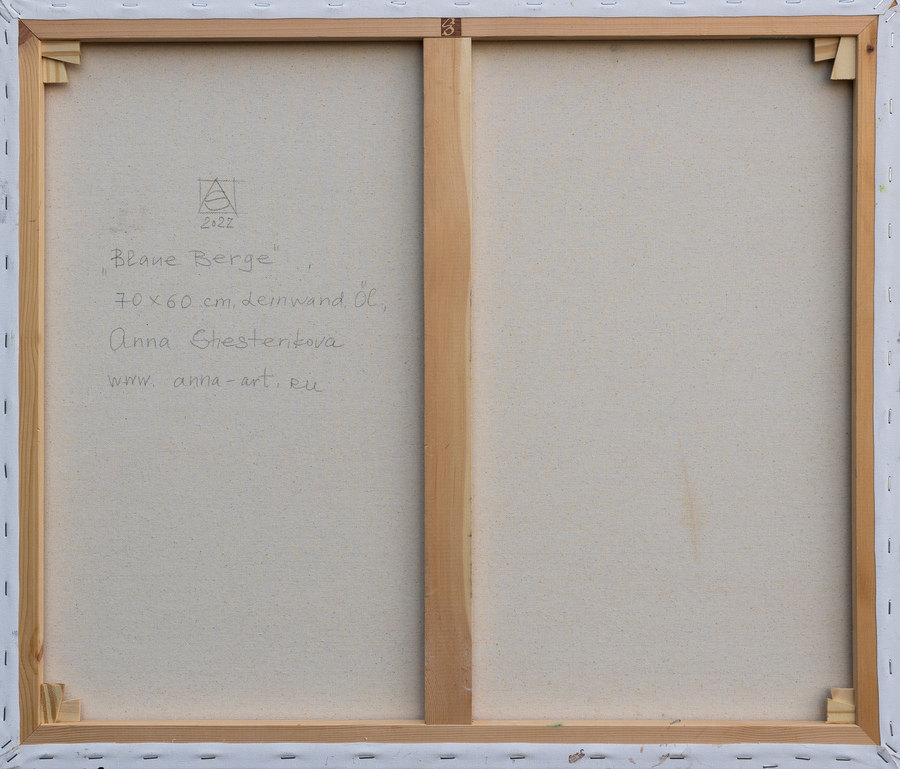 2022
"Blaue Berge",
70x60 cm, Leinwand, Öl,
Anna Shesterikova
www. anna-art. eu